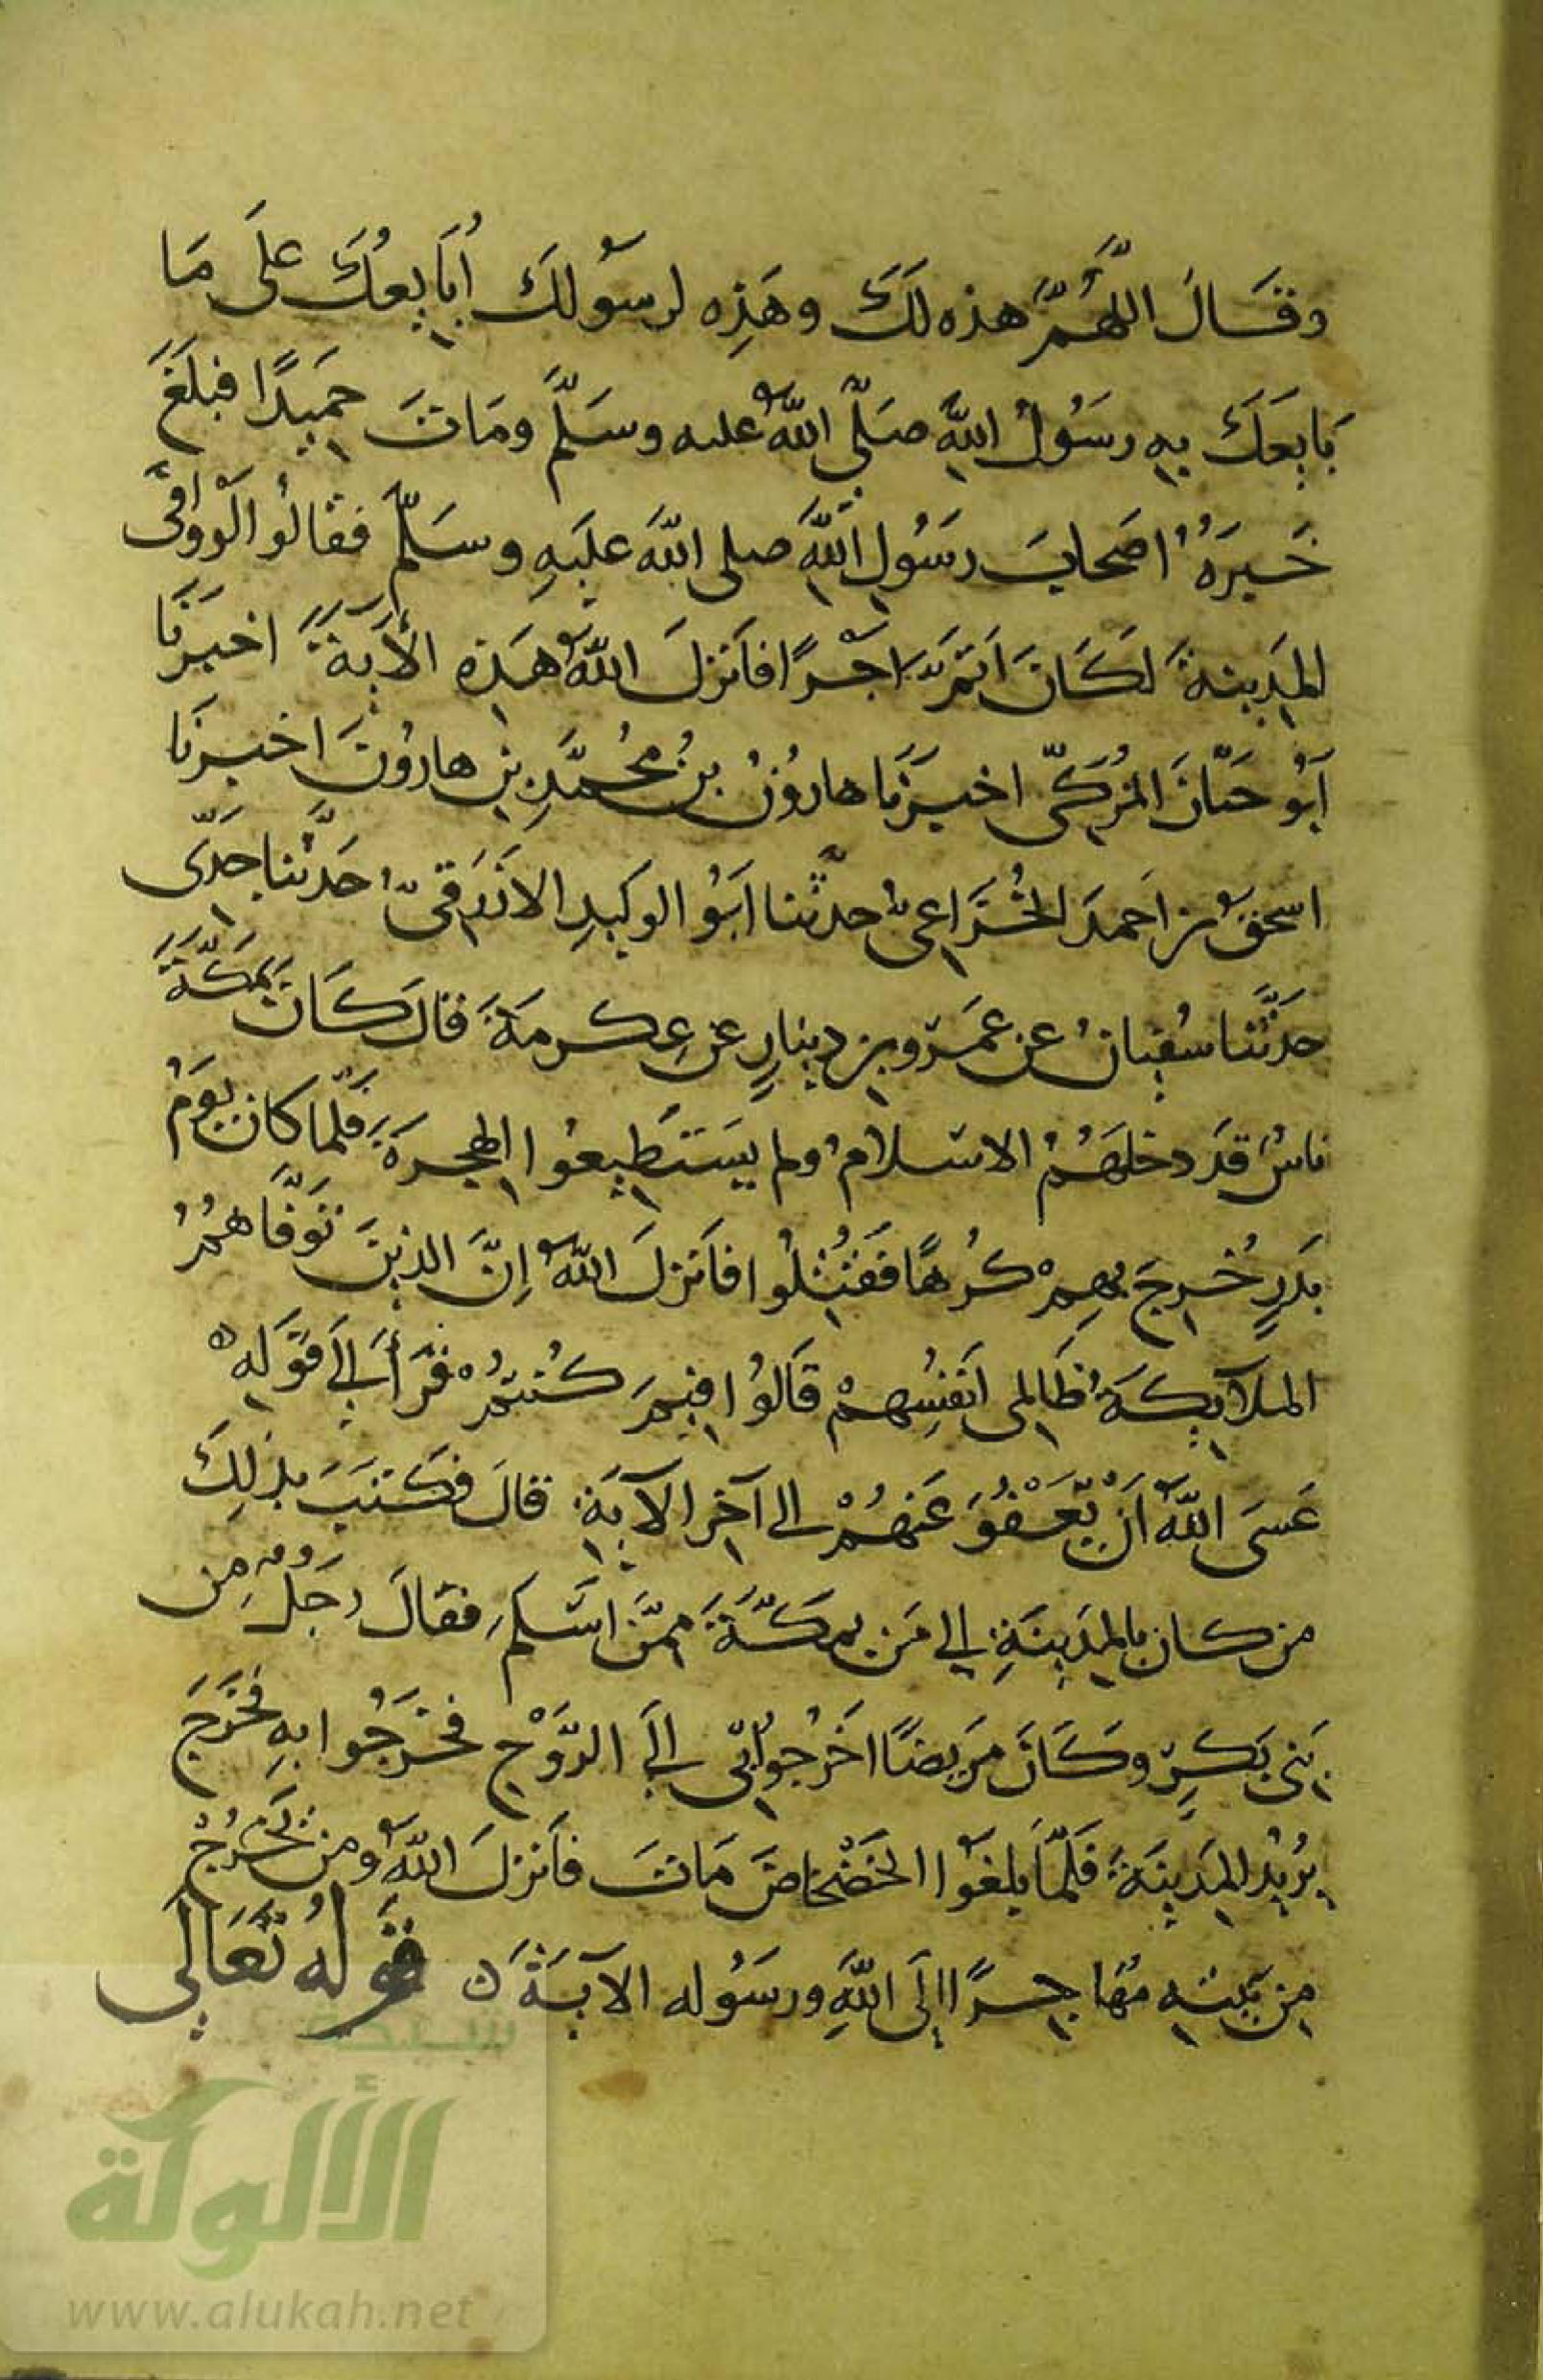 وقَالَ اللَّهُمَّ هذه لَكَ وهَذِه لرسُولكَ أُبَايعُكَ عَلَى مَا
بَايعَكَ بِهِ رسُولُ اللهِ صَلَّى اللهُ عليه وسَلَّم ومَاتَ حَمِيدًا فبلَغَ
خَبَرُهُ اصَحابَ رسُولِ اللهِ صلى الله عليهِ وسَلَّم فقالُوا لَوْ وَافَى
المدِينةَ لكَانَ اَتَمَّ اَجْرًا فأنزلَ اللهُ هَذِه الأيَةَ اخبَرَنَا
اَبُو حَسَّانَ المُزَكِّي اخبَرَنَا هارُونُ بنُ مُحمَّدِ بنِ هارُونَ اخبرَنَا
اسحقُ بن اَحمدَ الخُزَاعِيُّ حدَّثنا اَبُو الوَلِيدِ الازرَقِيُّ حَدَّثنا جَدِّي
حَدَّثَنا سُفيانُ عن عَمرو بن دِينارٍ عَن عِكرمَةَ قالَ كَانَ بمَكَّةَ
ناسٌ قَد دخلَهُمُ الاسْلامُ ولم يَسْتَطِيعُوا الهجرَةَ فلمَّا كان يَومُ
بَدرٍ خُرِجَ بهِمْ كُرهًا فَقُتِلُوا فأنزلَ اللهُ اِنَّ الذينَ تَوَفَّاهُمُ
الملآئِكَةُ ظَالِمي اَنفسِهمْ قَالوُا فِيمَ كُنتمْ قرَأَ إلَى قَولهِ
عَسَى اللهُ اَنْ يَّعْفُوَ عَنهُمْ الى آخِر الآيَةِ قالَ فكَتبَ بذلِكَ
من كان بالمدِينَةِ الى مَن بمكَّةَ مِمَّن اَسْلَمَ فقالَ رجُلٌ مِن
بَنِي بَكرٍ وكَانَ مَريضًا اخرُجُوا بِي إلَى الرَّوْحِ فخرَجُوا بهِ فخَرَجَ
يُرِيدُ المدِينَةَ فَلَمَّا بلغُوا الحَصْحَاصَ مَاتَ فأنزلَ اللهُ ومن يَخْرُجْ
مِن بَيتِهِ مُهَاجِرًا اِلَى اللهِ ورسُوله الآيَةَ ن قَولُهُ تَعَالَى
شبكة
الألوكة
www.alukah.net